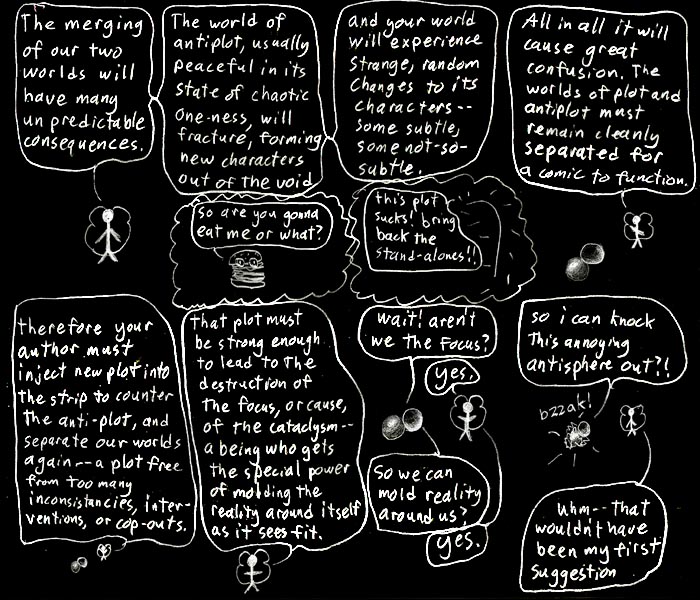 The merging
of our two
worlds will
have many
unpredictable
consequences.
The world of
antiplot, usually
peaceful in its
state of chaotic
one-ness, will
fracture, forming
new characters
out of the void
so are you gonna
eat me or what?
and your world
will experience
strange, random
changes to its
characters--
some subtle,
some not-so-
subtle.
this plot
sucks! bring
back the
stand-alones!!
All in all it will
cause great
confusion. The
worlds of plot and
antiplot must
remain cleanly
separated for
a comic to function.
therefore your
author must
inject new plot into
the strip to counter
the anti-plot, and
separate our worlds
again--a plot free
from too many
inconsistancies, inter-
ventions, or cop-outs.
that plot must
be strong enough
to lead to the
destruction of
the focus, or cause,
of the cataclysm--
a being who gets
the special power
of molding the
reality around itself
as it sees fit.
wait! aren't
we the focus?
yes.
So we can
mold reality
around us?
yes.
so i can knock
this annoying
antisphere out?!
bzzak!
uhm-- that
wouldn't have
been my first
suggestion